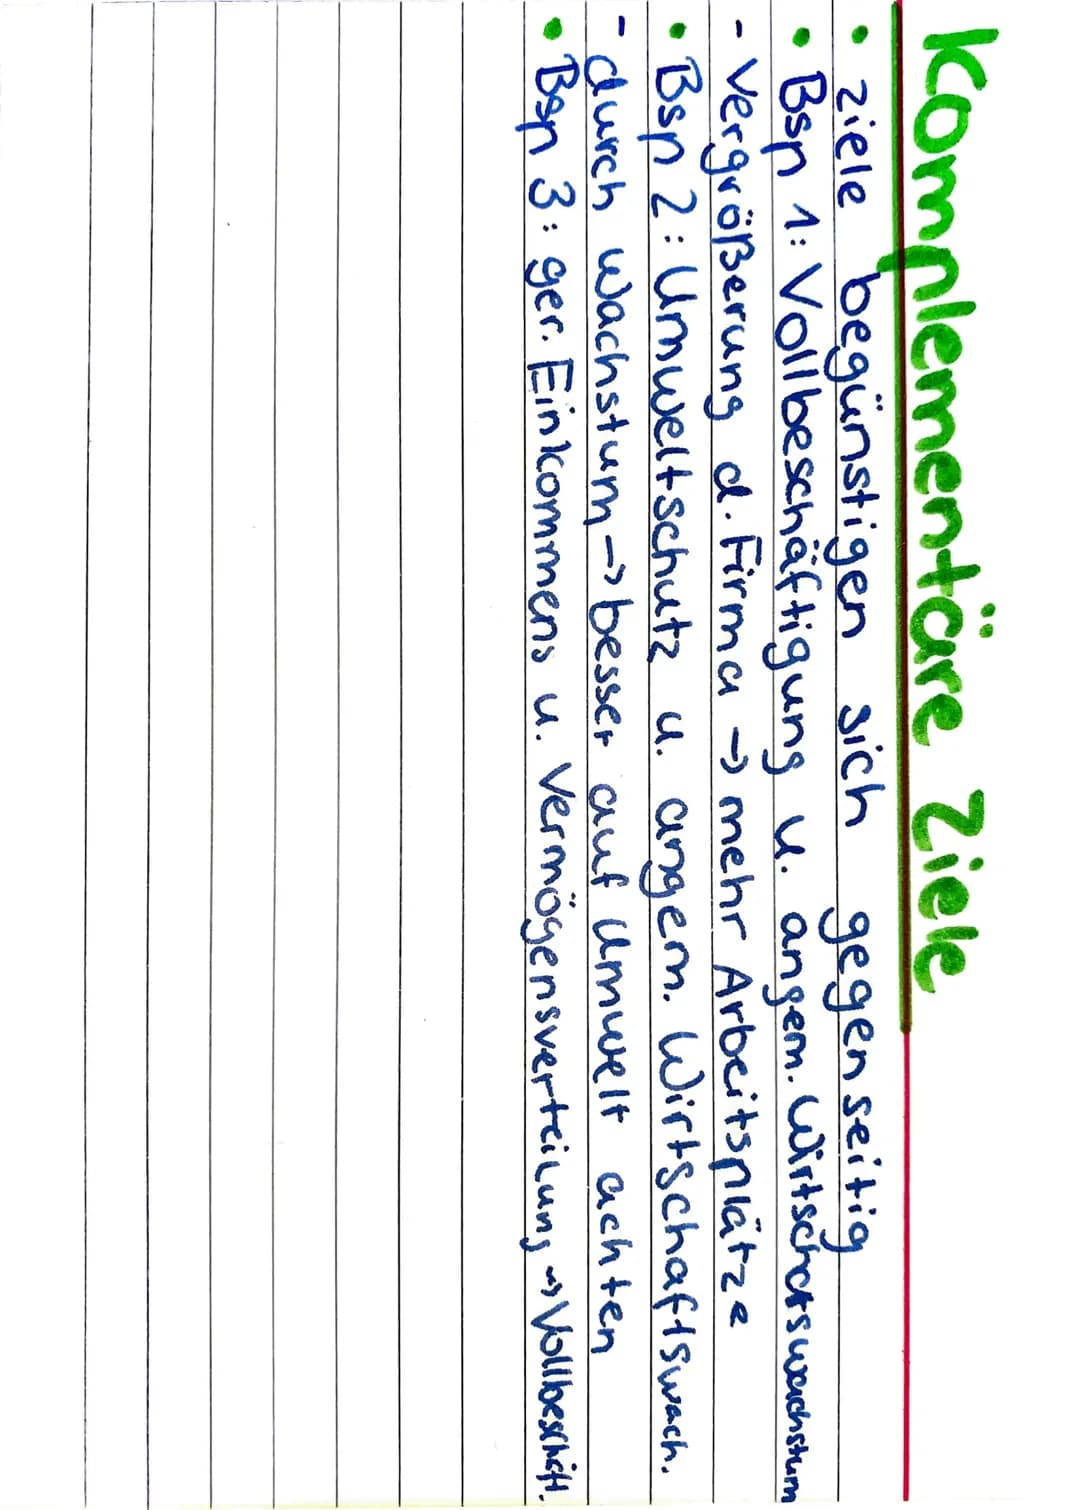 Komplementäre Ziele
• Ziele begünstigen sich gegenseitig
• Bsp 1: Vollbeschäftigung u. angem. Wirtschatswachstum
- Vergrößerung d. Firma → mehr Arbeitsplätze
• Bsp 2: Umweltschutz u. angem. Wirtschaftswach.
- durch Wachstum → besser auf Umwelt achten
• Bsp 3: ger. Einkommens u. Vermögensverteilung → Vollbeschäft.